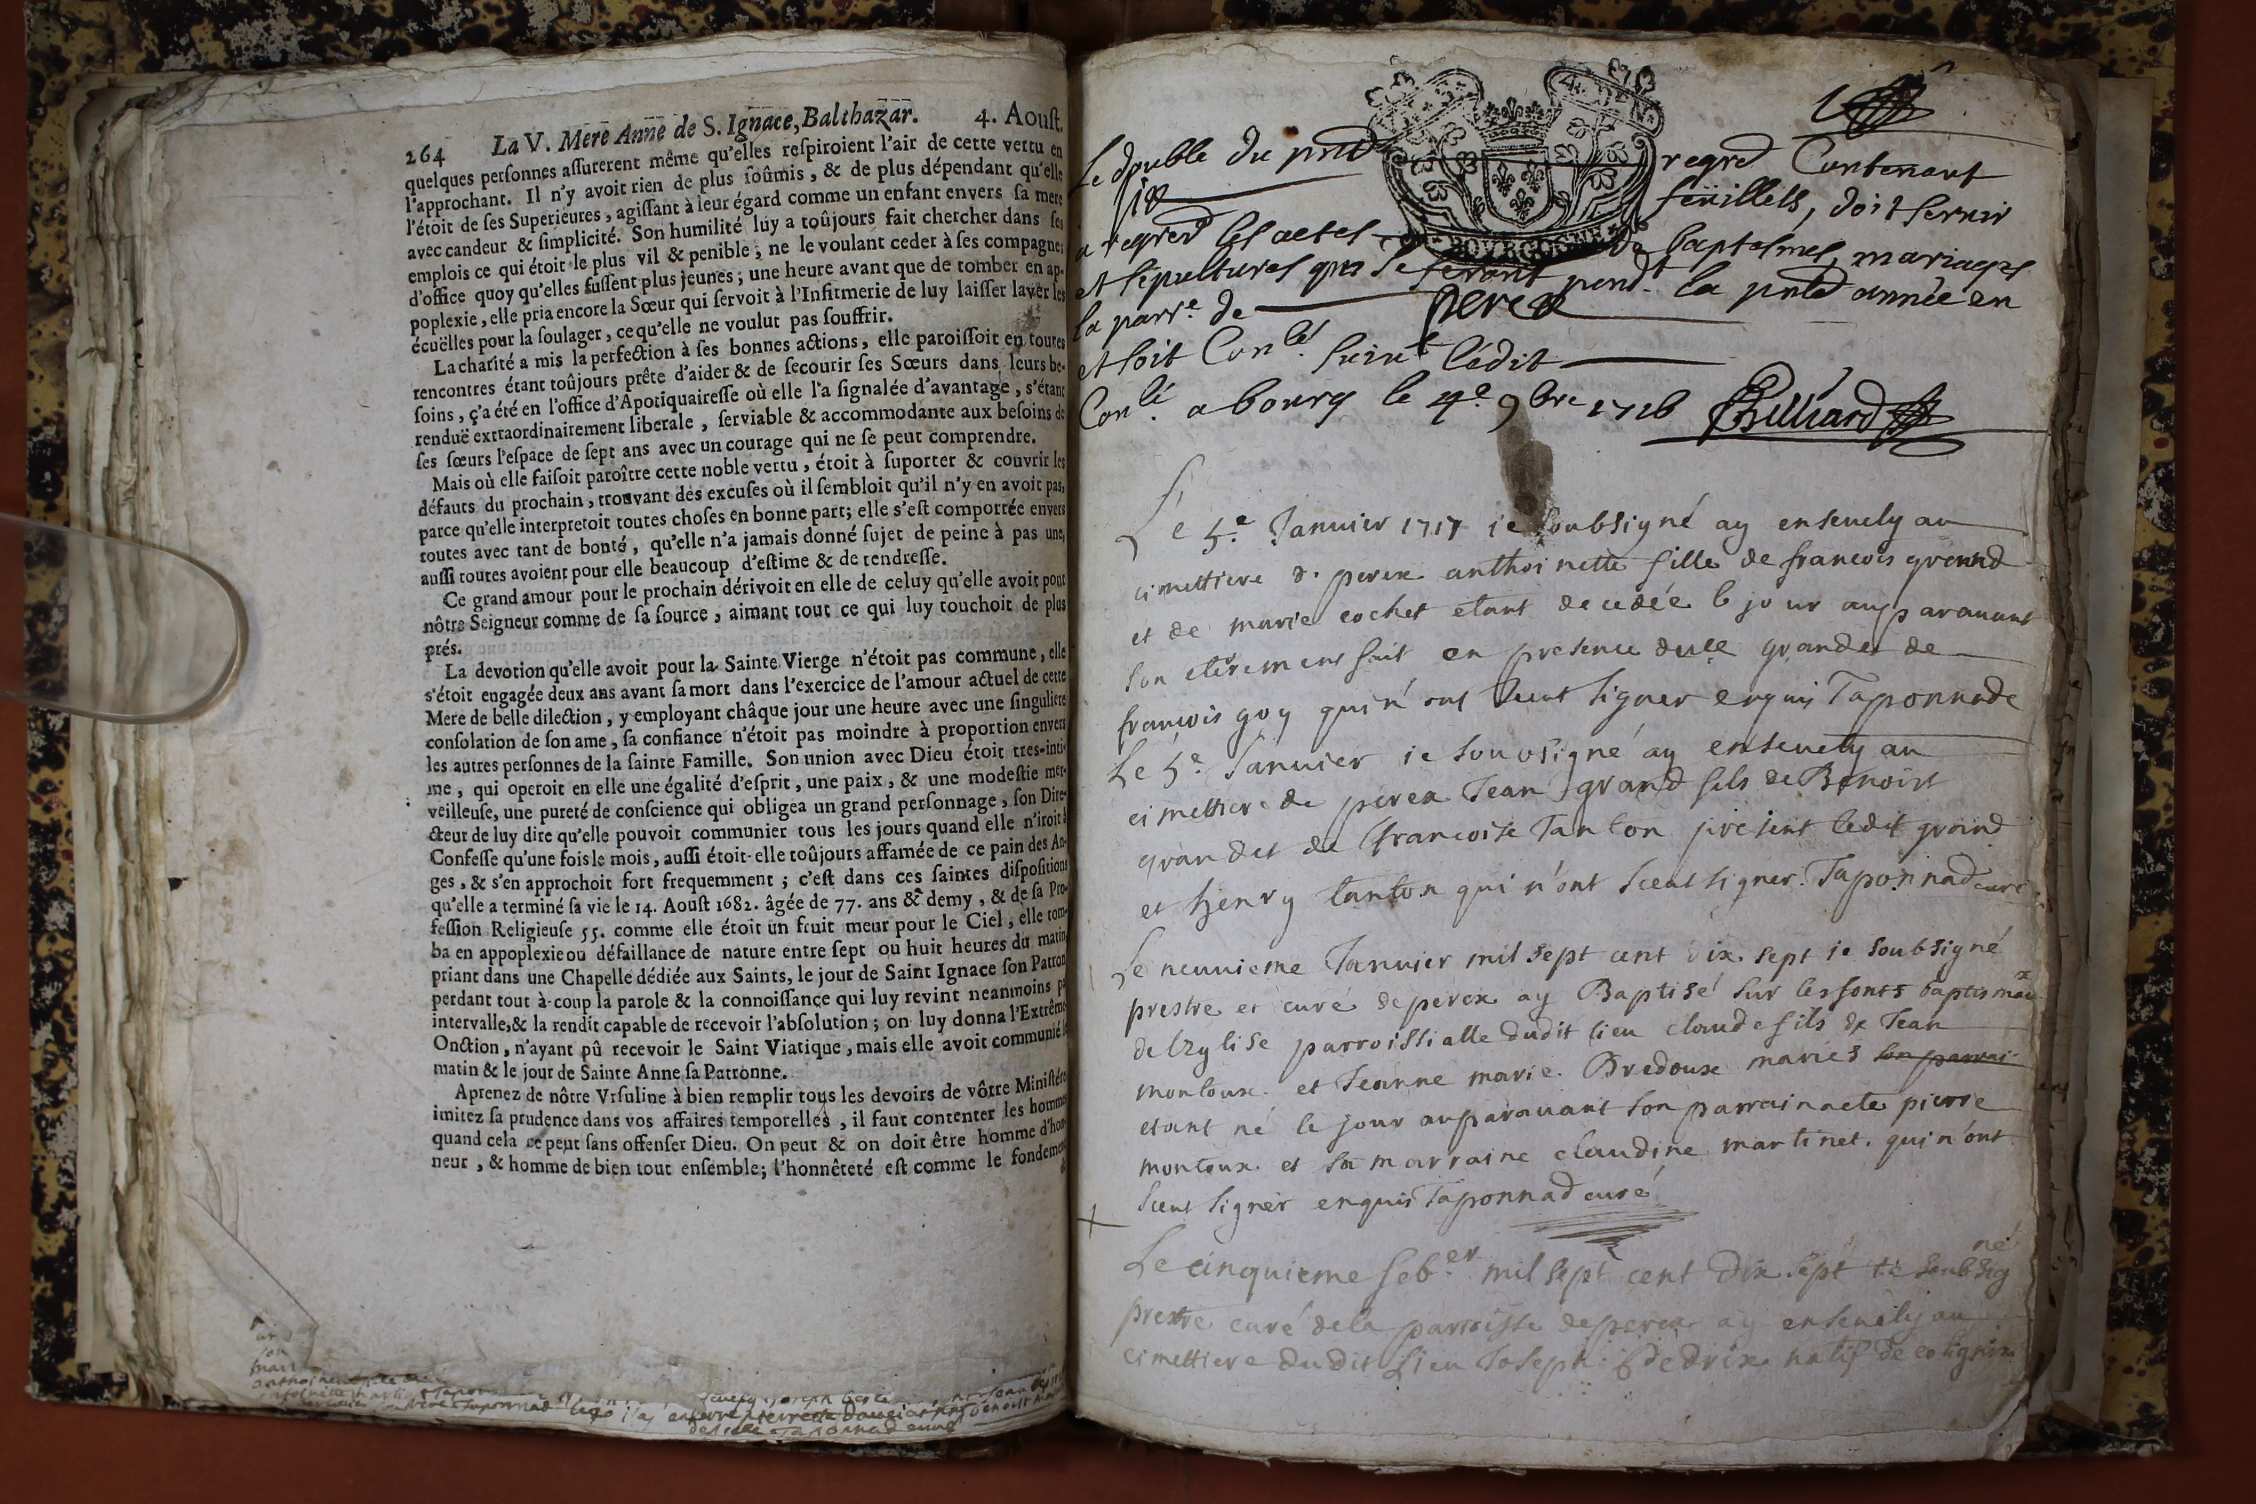 264 La V. Mere Anne de S. Ignace, Balthazar. 4. Aoust.
quelques personnes assurerent même qu'elles respiroient l'air de cette vertu en
l'approchant. Il n'y avoit rien de plus soûmis, & de plus dépendant qu'elle
l'étoit de ses Superieures, agissant à leur égard comme un enfant envers sa mere
avec candeur & simplicité. Son humilité luy a toûjours fait chercher dans ses
emplois ce qui étoit le plus vil & penible, ne le voulant ceder à ses compagnes
d'office quoy qu'elles fussent plus jeunes; une heure avant que de tomber en ap-
poplexie, elle pria encore la Sœur qui servoit à l'Infirmerie de luy laisser laver les
écuëlles pour la soulager, ce qu'elle ne voulut pas souffrir.
La charité a mis la perfection à ses bonnes actions, elle paroissoit en toutes
rencontres étant toûjours prête d'aider & de secourir ses Sœurs dans leurs be-
soins, ç'a été en l'office d'Apotiquairesse où elle l'a signalée d'avantage, s'étant
renduë extraordinairement liberale, serviable & accommodante aux besoins de
ses sœurs l'espace de sept ans avec un courage qui ne se peut comprendre.
Mais où elle faisoit paroître cette noble vertu, étoit à suporter & couvrir les
défauts du prochain, trouvant des excuses où il sembloit qu'il n'y en avoit pas,
parce qu'elle interpretoit toutes choses en bonne part; elle s'est comportée envers
toutes avec tant de bonté, qu'elle n'a jamais donné sujet de peine à pas une,
aussi toutes avoient pour elle beaucoup d'estime & de tendresse.
Ce grand amour pour le prochain dérivoit en elle de celuy qu'elle avoit pour
nôtre Seigneur comme de sa source, aimant tout ce qui luy touchoit de plus
prés.
La devotion qu'elle avoit pour la Sainte Vierge n'étoit pas commune, elle
s'étoit engagée deux ans avant sa mort dans l'exercice de l'amour actuel de cette
Mere de belle dilection, y employant châque jour une heure avec une singuliere
consolation de son ame, sa confiance n'étoit pas moindre à proportion envers
les autres personnes de la sainte Famille. Son union avec Dieu étoit tres-inti-
me, qui operoit en elle une égalité d'esprit, une paix, & une modestie mer-
veilleuse, une pureté de conscience qui obligea un grand personnage, son Dire-
cteur de luy dire qu'elle pouvoit communier tous les jours quand elle n'iroit à
Confesse qu'une fois le mois, aussi étoit-elle toûjours affamée de ce pain des An-
ges, & s'en approchoit fort frequemment; c'est dans ces saintes dispositions
qu'elle a terminé sa vie le 14. Aoust 1682. âgée de 77. ans & demy, & de sa Pro-
fession Religieuse 55. comme elle étoit un fruit meur pour le Ciel, elle tom-
ba en appoplexie ou défaillance de nature entre sept ou huit heures du matin
priant dans une Chapelle dédiée aux Saints, le jour de Saint Ignace son Patron
perdant tout à-coup la parole & la connoissance qui luy revint neanmoins pa
intervalle, & la rendit capable de recevoir l'absolution; on luy donna l'Extrême
Onction, n'ayant pû recevoir le Saint Viatique, mais elle avoit communié le
matin & le jour de Sainte Anne sa Patronne.
Aprenez de nôtre Ursuline à bien remplir tous les devoirs de vôtre Ministére
imitez sa prudence dans vos affaires temporelles, il faut contenter les hommes
quand cela ce peut sans offenser Dieu. On peut & on doit être homme d'hon-
neur, & homme de bien tout ensemble; l'honnêteté est comme le fondement
Taponnad curé
1
Le double du pnt regred Contenant
six feüillets, doit servir
a regrer les actes de baptesmes, mariages
et sepultures qui se feront pendt la pnte année en
la parre de perex
et soit Conlé suivt lédit
BOVRGOGNE
Conlé a bourg le 4e 9bre 1716 Chilliard
Le 5e Januier 1717 ie soubsigné ay enseuely au
cimettiere de perex anthoinette fille de francois grand
et de marie cochet etant decedée le jour auparauant
son eterement fait en presence dudt grand et de
françois goy qui n'ont sceut signer enquis Taponnade
Le 5e Januier ie sousigné ay enseuely au
cimettiere de perex Jean grand fils de Benoist
grand et de francoise Tanton present ledit grand
et henry tanton qui n'ont sceut signer. Taponnad curé
Le neuuieme Januier mil sept cent dix sept ie soubsigné
prestre et curé de perex ay Baptisé sur les fonts baptismaux
de lzglise parroissialle dudit lieu claude fils de Jean
montoux et Jeanne marie Bredoux mariés son parrai
etant né le jour auparauant son parrain a ete pierre
montoux et sa marraine claudine martinet. qui n'ont
sceut signer enquis Taponnad curé
Le cinquieme feber mil sept cent dix sept ie soubsigné
prestre curé de la parroisse de perex ay enseuely au
cimettiere dudit Lieu Joseph natif de